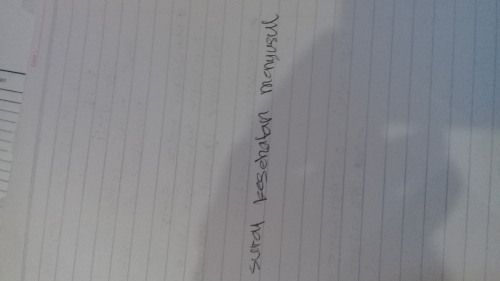 surat kesehatan menyusul